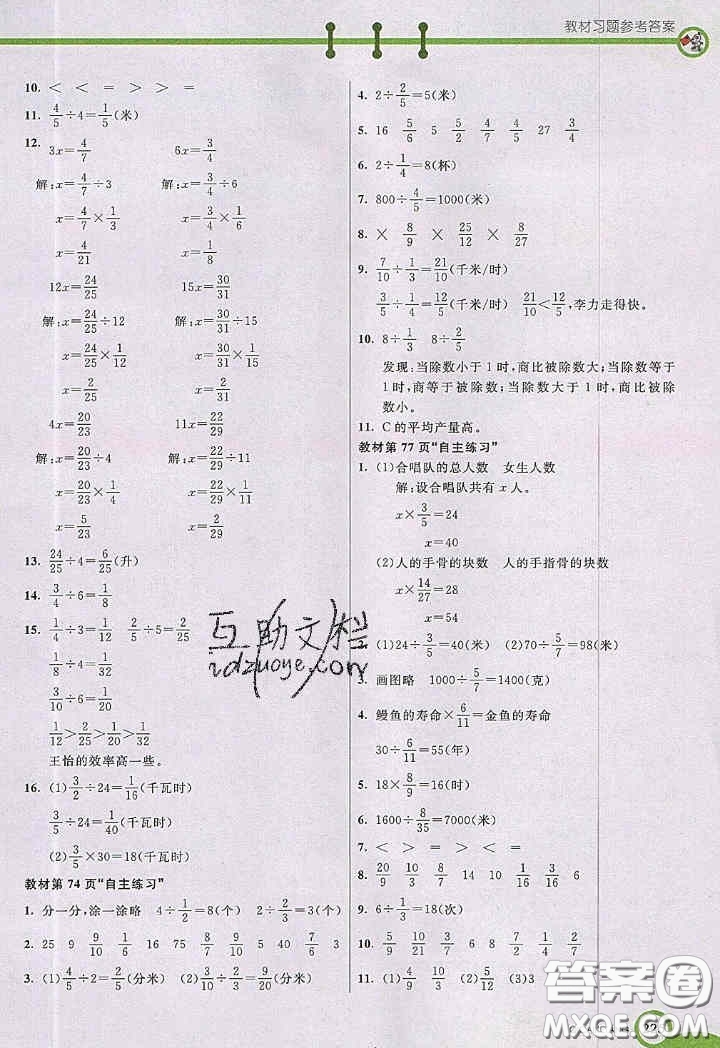 教材习题参考答案
10. < < = > > =
11. 4/5÷4=1/5(米)
12. 3x=4/7 6x=3/4
解:x=4/7÷3 解:x=3/4÷6
x=4/7×1/3 x=3/4×1/6
x=4/21 x=1/8
12x=24/25 15x=30/31
解:x=24/25÷12 解:x=30/31÷15
x=24/25×1/12 x=30/31×1/15
x=2/25 x=2/31
4x=20/23 11x=22/29
解:x=20/23÷4 解:x=22/29÷11
x=20/23×1/4 x=22/29×1/11
x=5/23 x=2/29
13. 24/25÷4=6/25(升)
14. 3/4÷6=1/8
15. 1/4÷3=1/12 2/5÷5=2/25
3/7÷9=1/21
3/10÷6=1/20
1/12>2/25>1/20>1/21
王怡的效率高一些。
16. (1)3/2÷24=1/16(千瓦时)
3/5÷24=1/40(千瓦时)
(2)3/5×30=18(千瓦时)
教材第 74 页“自主练习”
1. 分一分,涂一涂略 4÷1/2=8(个) 2÷2/3=3(个)
2. 25 9 9/10 1/16 75 8/9 9/10 5 40 6/7 3
3. (1)4/5÷2=2/5(分米) (2)3/10÷2/3=9/20(分米)
4. 2÷2/5=5(米)
5. 16 5/6 5 5/2 4/5 27 3/4
6. 2÷1/4=8(杯)
7. 800÷4/5=1000(米)
8. × 8/9 × 25/12 × 8/27
9. 7/10÷1/3=21/10(千米/时)
3/5÷1/4=12/5(千米/时) 21/10<12/5,李力走得快。
10. 8÷1/3 8÷2/5
发现:当除数小于 1 时,商比被除数大;当除数等于
1 时,商等于被除数;当除数大于 1 时,商比被除
数小。
11. C的平均产量高。
教材第 77 页“自主练习”
1. (1)合唱队的总人数 女生人数
解:设合唱队共有 x 人。
x×3/5=24
x=40
(2)人的手骨的块数 人的手指骨的块数
x×14/27=28
x=54
2. (1)24÷3/5=40(米) (2)70÷5/7=98(米)
3. 画图略 1000÷5/7=1400(克)
4. 鳗鱼的寿命×6/11=金鱼的寿命
30÷6/11=55(年)
5. 18×8/9=16(米)
6. 1600÷8/35=7000(米)
7. < > = > < =
8. 20/9 10/3 2/3 3/10 15/8 6/7 13/4
9. 6÷1/3=18(次)
10. 5/9 4/3 6 8 7/2 1/2 2/7
11. (1)4/9 10/3 (2)5/12 (3)3
互助文档
zdzuoye.com
答案圈
MXQE.COM